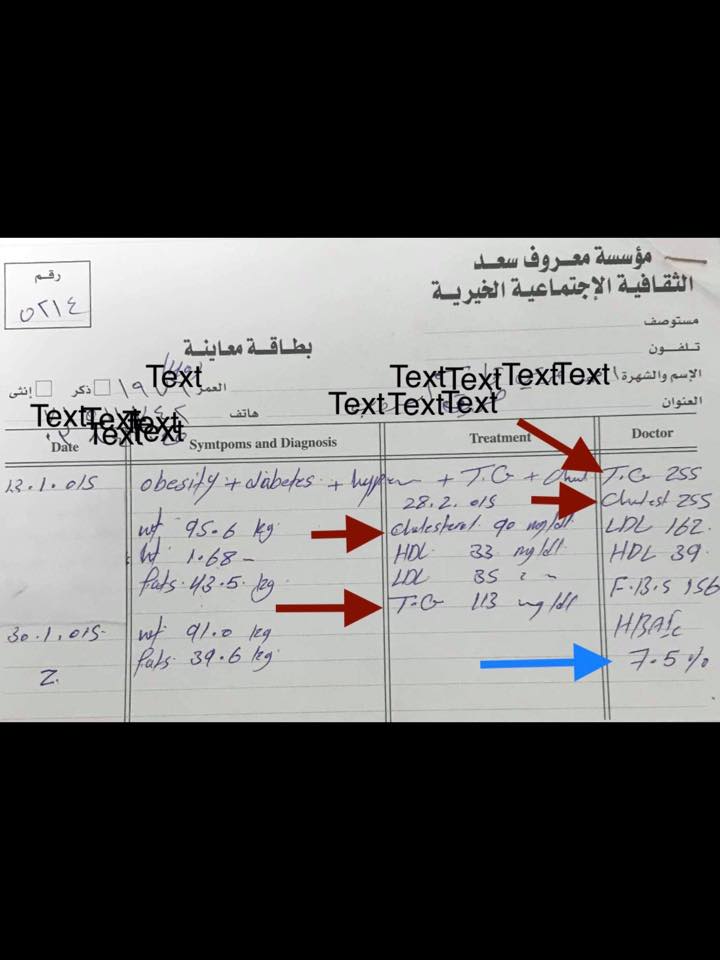 مؤسسة معروف سعد
الثقافية الإجتماعية الخيرية
رقم
٥٢١٤
مستوصف
بطاقة معاينة
تلفون
الإسم والشهرة Text Text Text Text العمر Text ذكر إنثى
العنوان Text Text Text هاتف Text Text Text Text Text
Date Symtpoms and Diagnosis Treatment Doctor
13.1.015 obesity + diabetes + + T.G + T.G 255
28.2.015 Cholest 255
wt 95.6 kg Cholesterol 90 mg/dl LDL 162
Ht 1.68 HDL 33 mg/dl HDL 39
Fats 43.5 kg LDL 35 F.B.S 156
T.G 113 mg/dl
30.1.015 wt 91.0 kg HBA1c
Fats 39.6 kg 7.5 %
2.